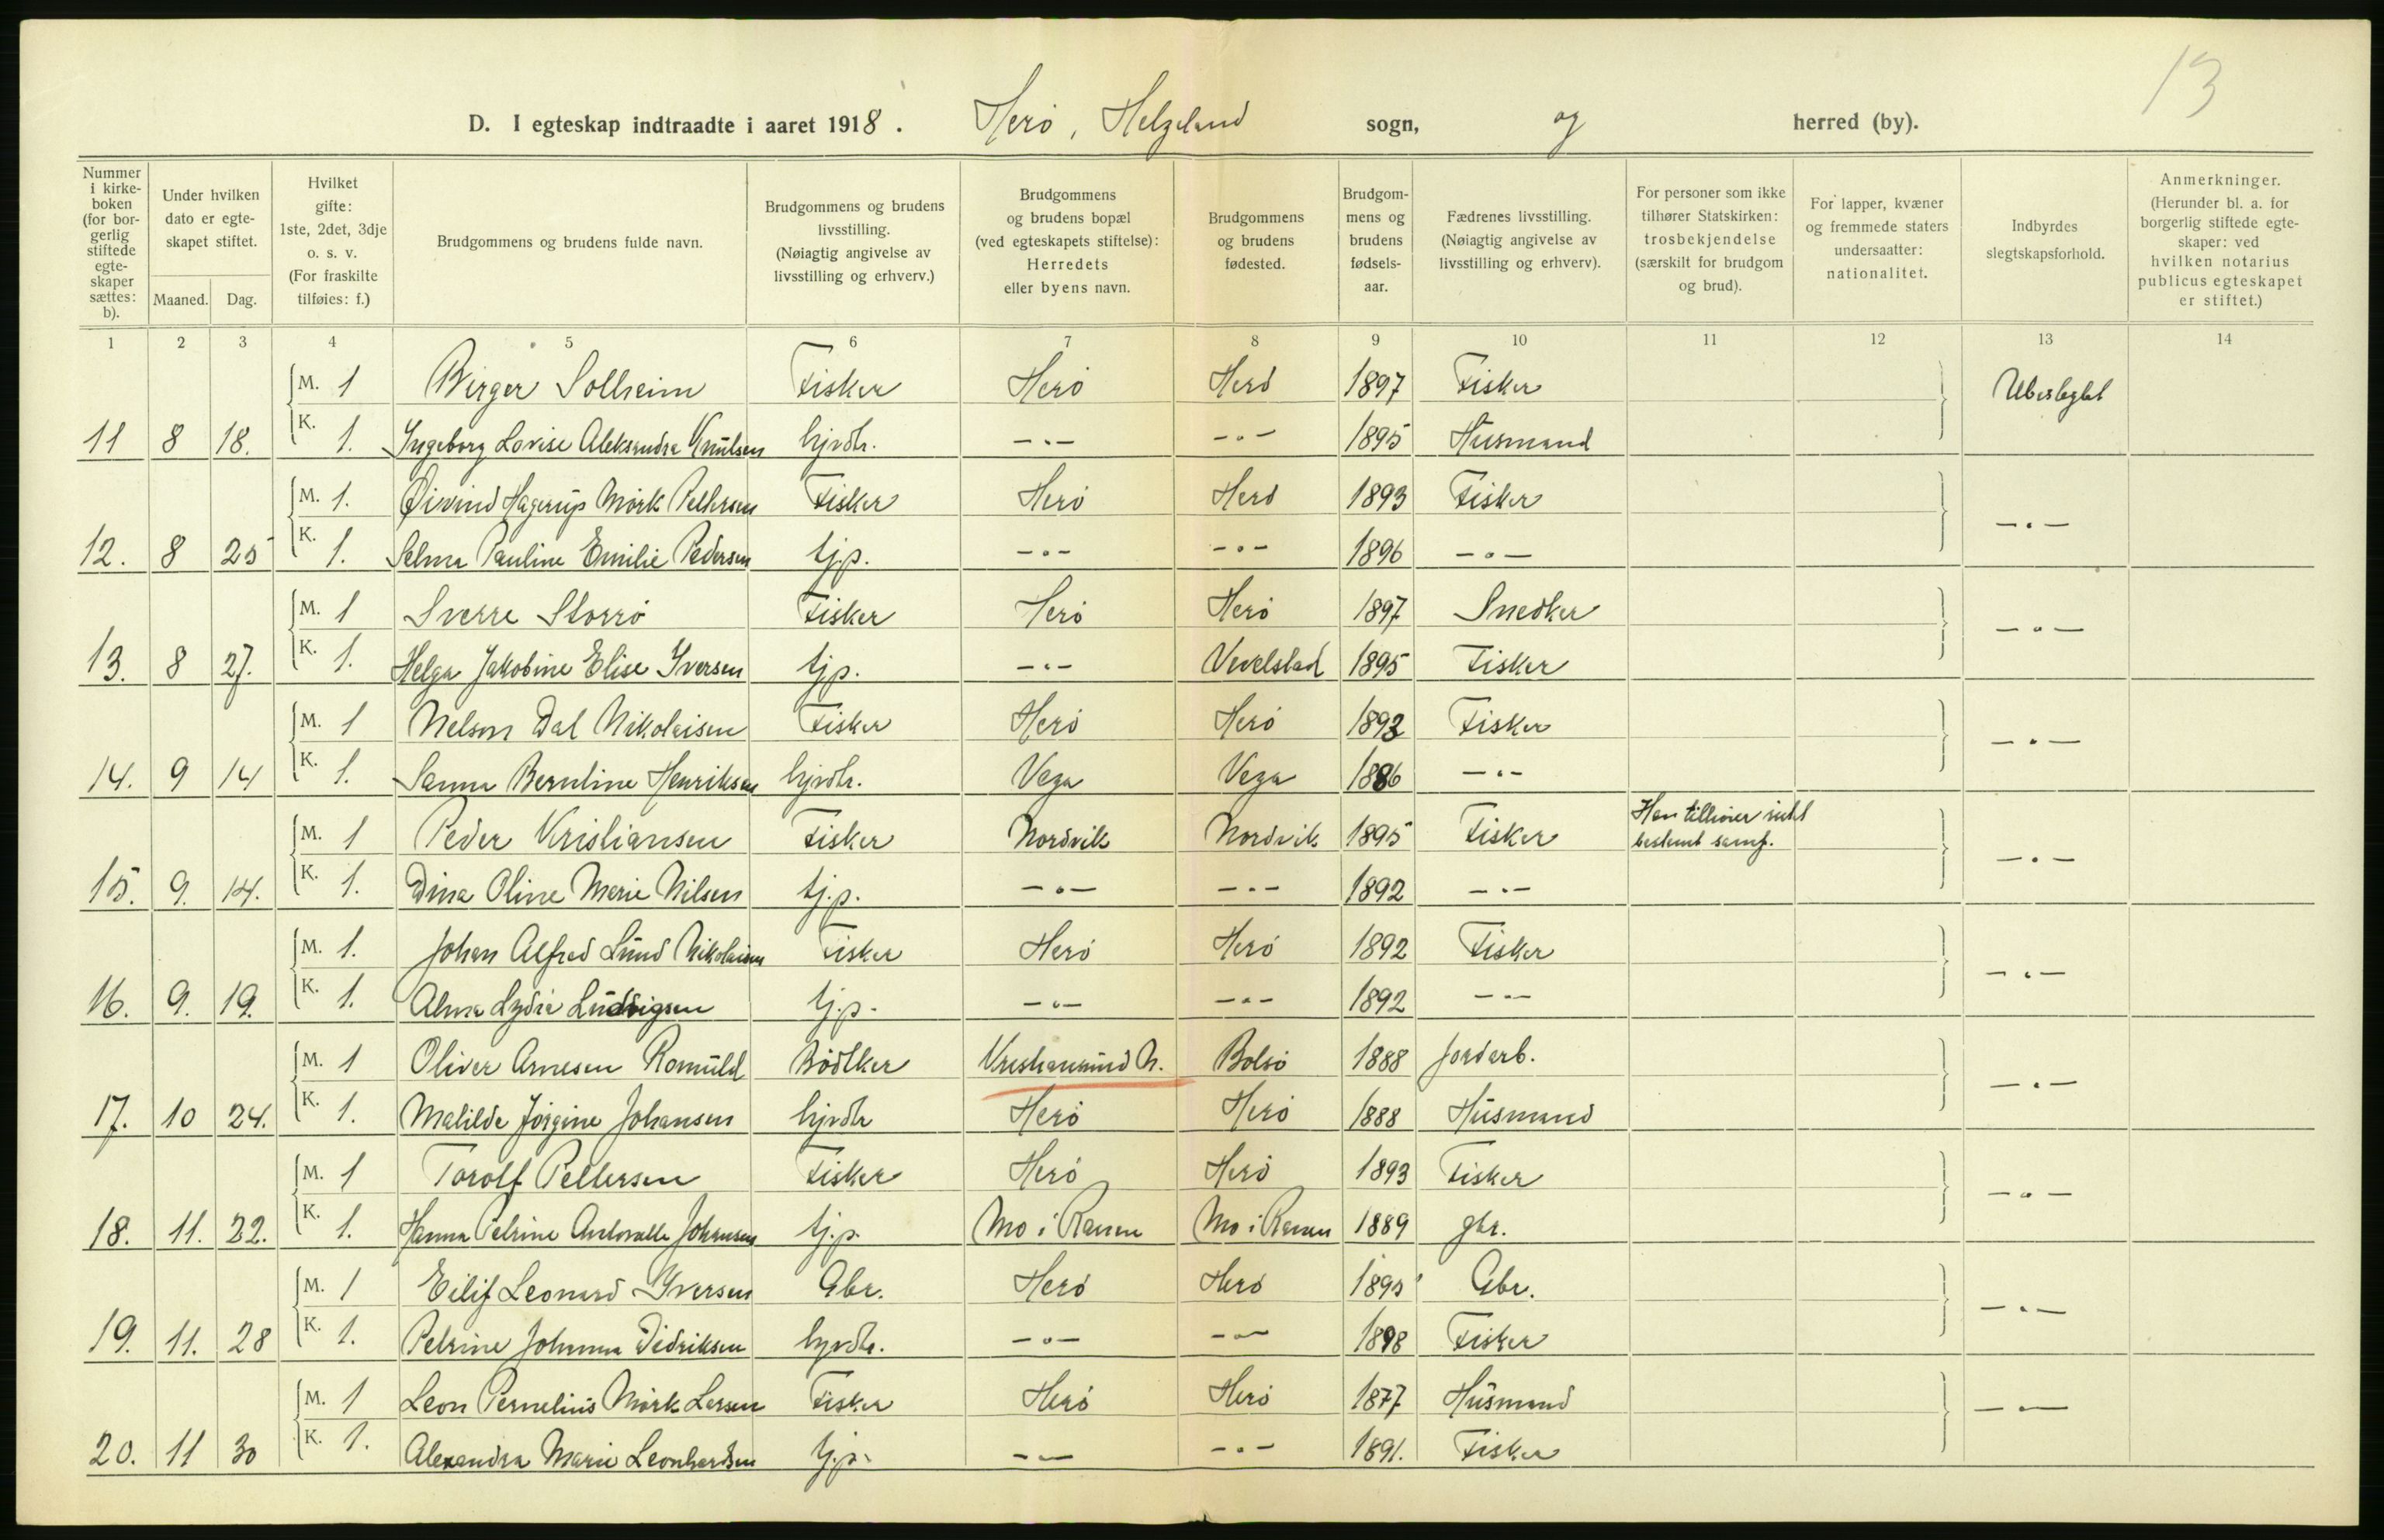 13
D. I egteskap indtraadte i aaret 1918. Herö, Helgeland sogn, og herred (by).
Nummer i kirkeboken (for borgerlig stiftede egteskaper sættes: b). | Under hvilken dato er egteskapet stiftet. Maaned. Dag. | Hvilket gifte: 1ste, 2det, 3dje o. s. v. (For fraskilte tilføies: f.) | Brudgommens og brudens fulde navn. | Brudgommens og brudens livsstilling. (Nøiagtig angivelse av livsstilling og erhverv.) | Brudgommens og brudens bopæl (ved egteskapets stiftelse): Herredets eller byens navn. | Brudgommens og brudens fødested. | Brudgommens og brudens fødselsaar. | Fædrenes livsstilling. (Nøiagtig angivelse av livsstilling og erhverv). | For personer som ikke tilhører Statskirken: trosbekjendelse (særskilt for brudgom og brud). | For lapper, kvæner og fremmede staters undersaatter: nationalitet. | Indbyrdes slegtskapsforhold. | Anmerkninger. (Herunder bl. a. for borgerlig stiftede egteskaper: ved hvilken notarius publicus egteskapet er stiftet.)
1 2 3 4 5 6 7 8 9 10 11 12 13 14
M. 1 Birger Solheim Fisker Herö Herö 1897 Fisker Ubeslegtet
11 8 18. K. 1. Ingeborg Lovise Aleksandra Knutsen hjvdtr. -"- -"- 1895 Husmand
M. 1. Øivind Hagerup Mörk Pettersen Fisker Herö Herö 1893 Fisker -"-
12. 8 25 K. 1. Selma Pauline Emilie Pedersen tj.p. -"- -"- 1896 -"-
M. 1 Sverre Storrö Fisker Herö Herö 1897 Snedker -"-
13. 8 27. K. 1. Helga Jakobine Elise Iversen tjp. -"- Vevelstad 1895 Fisker
M. 1 Nelson Dal Nikolaisen Fisker Herö Herö 1892 Fisker -"-
14. 9 14 K. 1. Sanna Berntine Henriksen hjvdtr. Vega Vega 1886 -"-
M. 1 Peder Kristiansen Fisker Nordvik Nordvik 1895 Fisker Han tilhører intet bestemt samf. -"-
15. 9. 14. K. 1. Dina Oline Marie Nilsen tj.p. -"- -"- 1892 -"-
M. 1. Johan Alfred Lund Nikolaisen Fisker Herö Herö 1892 Fisker -"-
16. 9. 19. K. 1. Alma Lydia Ludvigsen tj.p. -"- -"- 1892 -"-
M. 1 Oliver Arnesen Romuld Bödtker Kristiansund N. Bolsö 1888 Jordarb. -"-
17. 10 24. K. 1. Matilde Jörgine Johansen hjvdtr Herö Herö 1888 Husmand
M. 1 Torolf Pettersen Fisker Herö Herö 1893 Fisker -"-
18. 11. 22. K. 1. Hanna Petrine Johansen tj.p. Mo i Ranen Mo i Ranen 1889 gbr.
M. 1 Eilif Leonard Iversen Gbr. Herö Herö 1895 Gbr. -"-
19. 11. 28 K. 1. Petrine Johanna Didriksen hjvdtr. -"- -"- 1898 Fisker
M. 1 Leon Pernelius Mörk Larsen Fisker Herö Herö 1877 Husmand -"-
20. 11 30 K. 1. Alexandra Marie Leonhardsen tj.p. -"- -"- 1891. Fisker